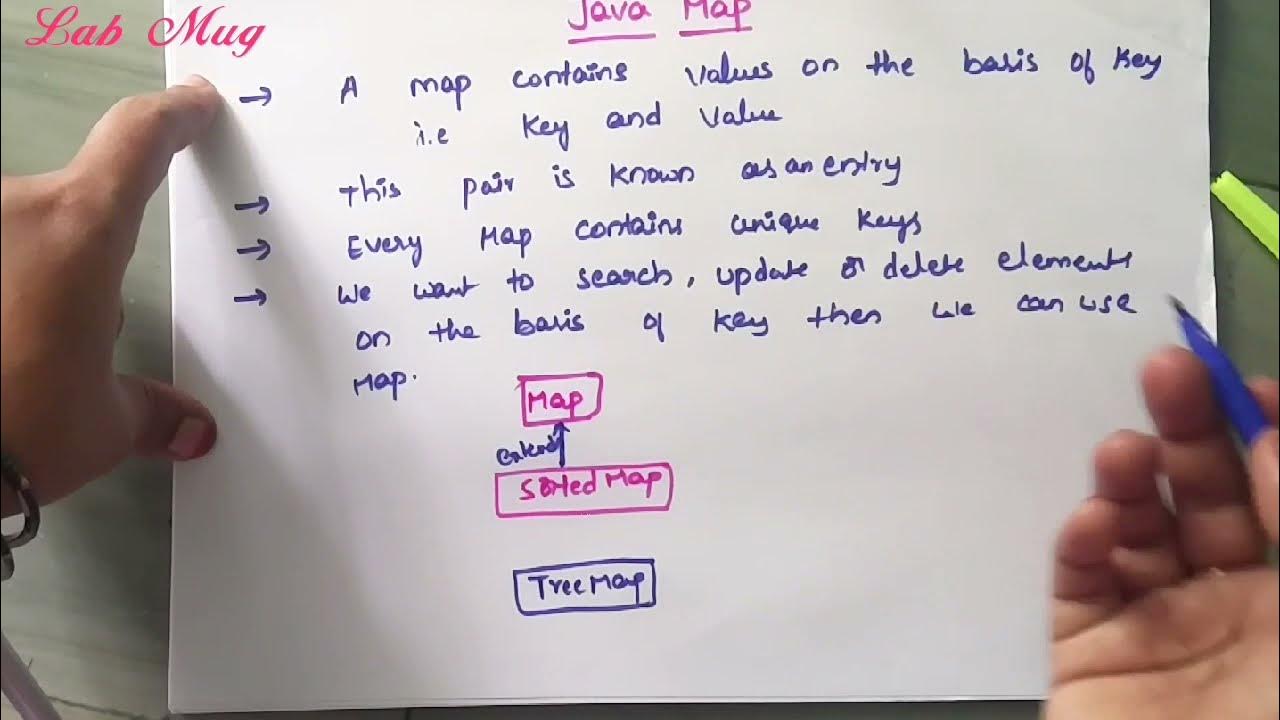 Lab Mug
Java Map
→ A map contains values on the basis of key
i.e key and value
→ This pair is known as an entry
→ Every Map contains unique keys
→ We want to search, update or delete elements
on the basis of key then we can use
Map.
Map
Sorted Map
TreeMap